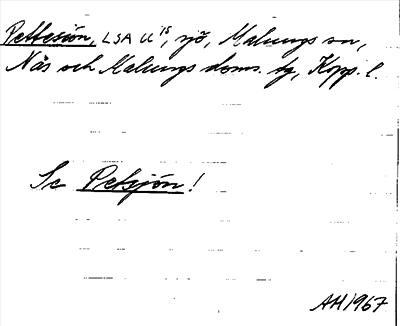 Pettesjön, LSA LL 15, sjö, Malungs sn,
Nås och Malungs doms. tg, Kopp. l.
Se Petsjön!
AH 1967